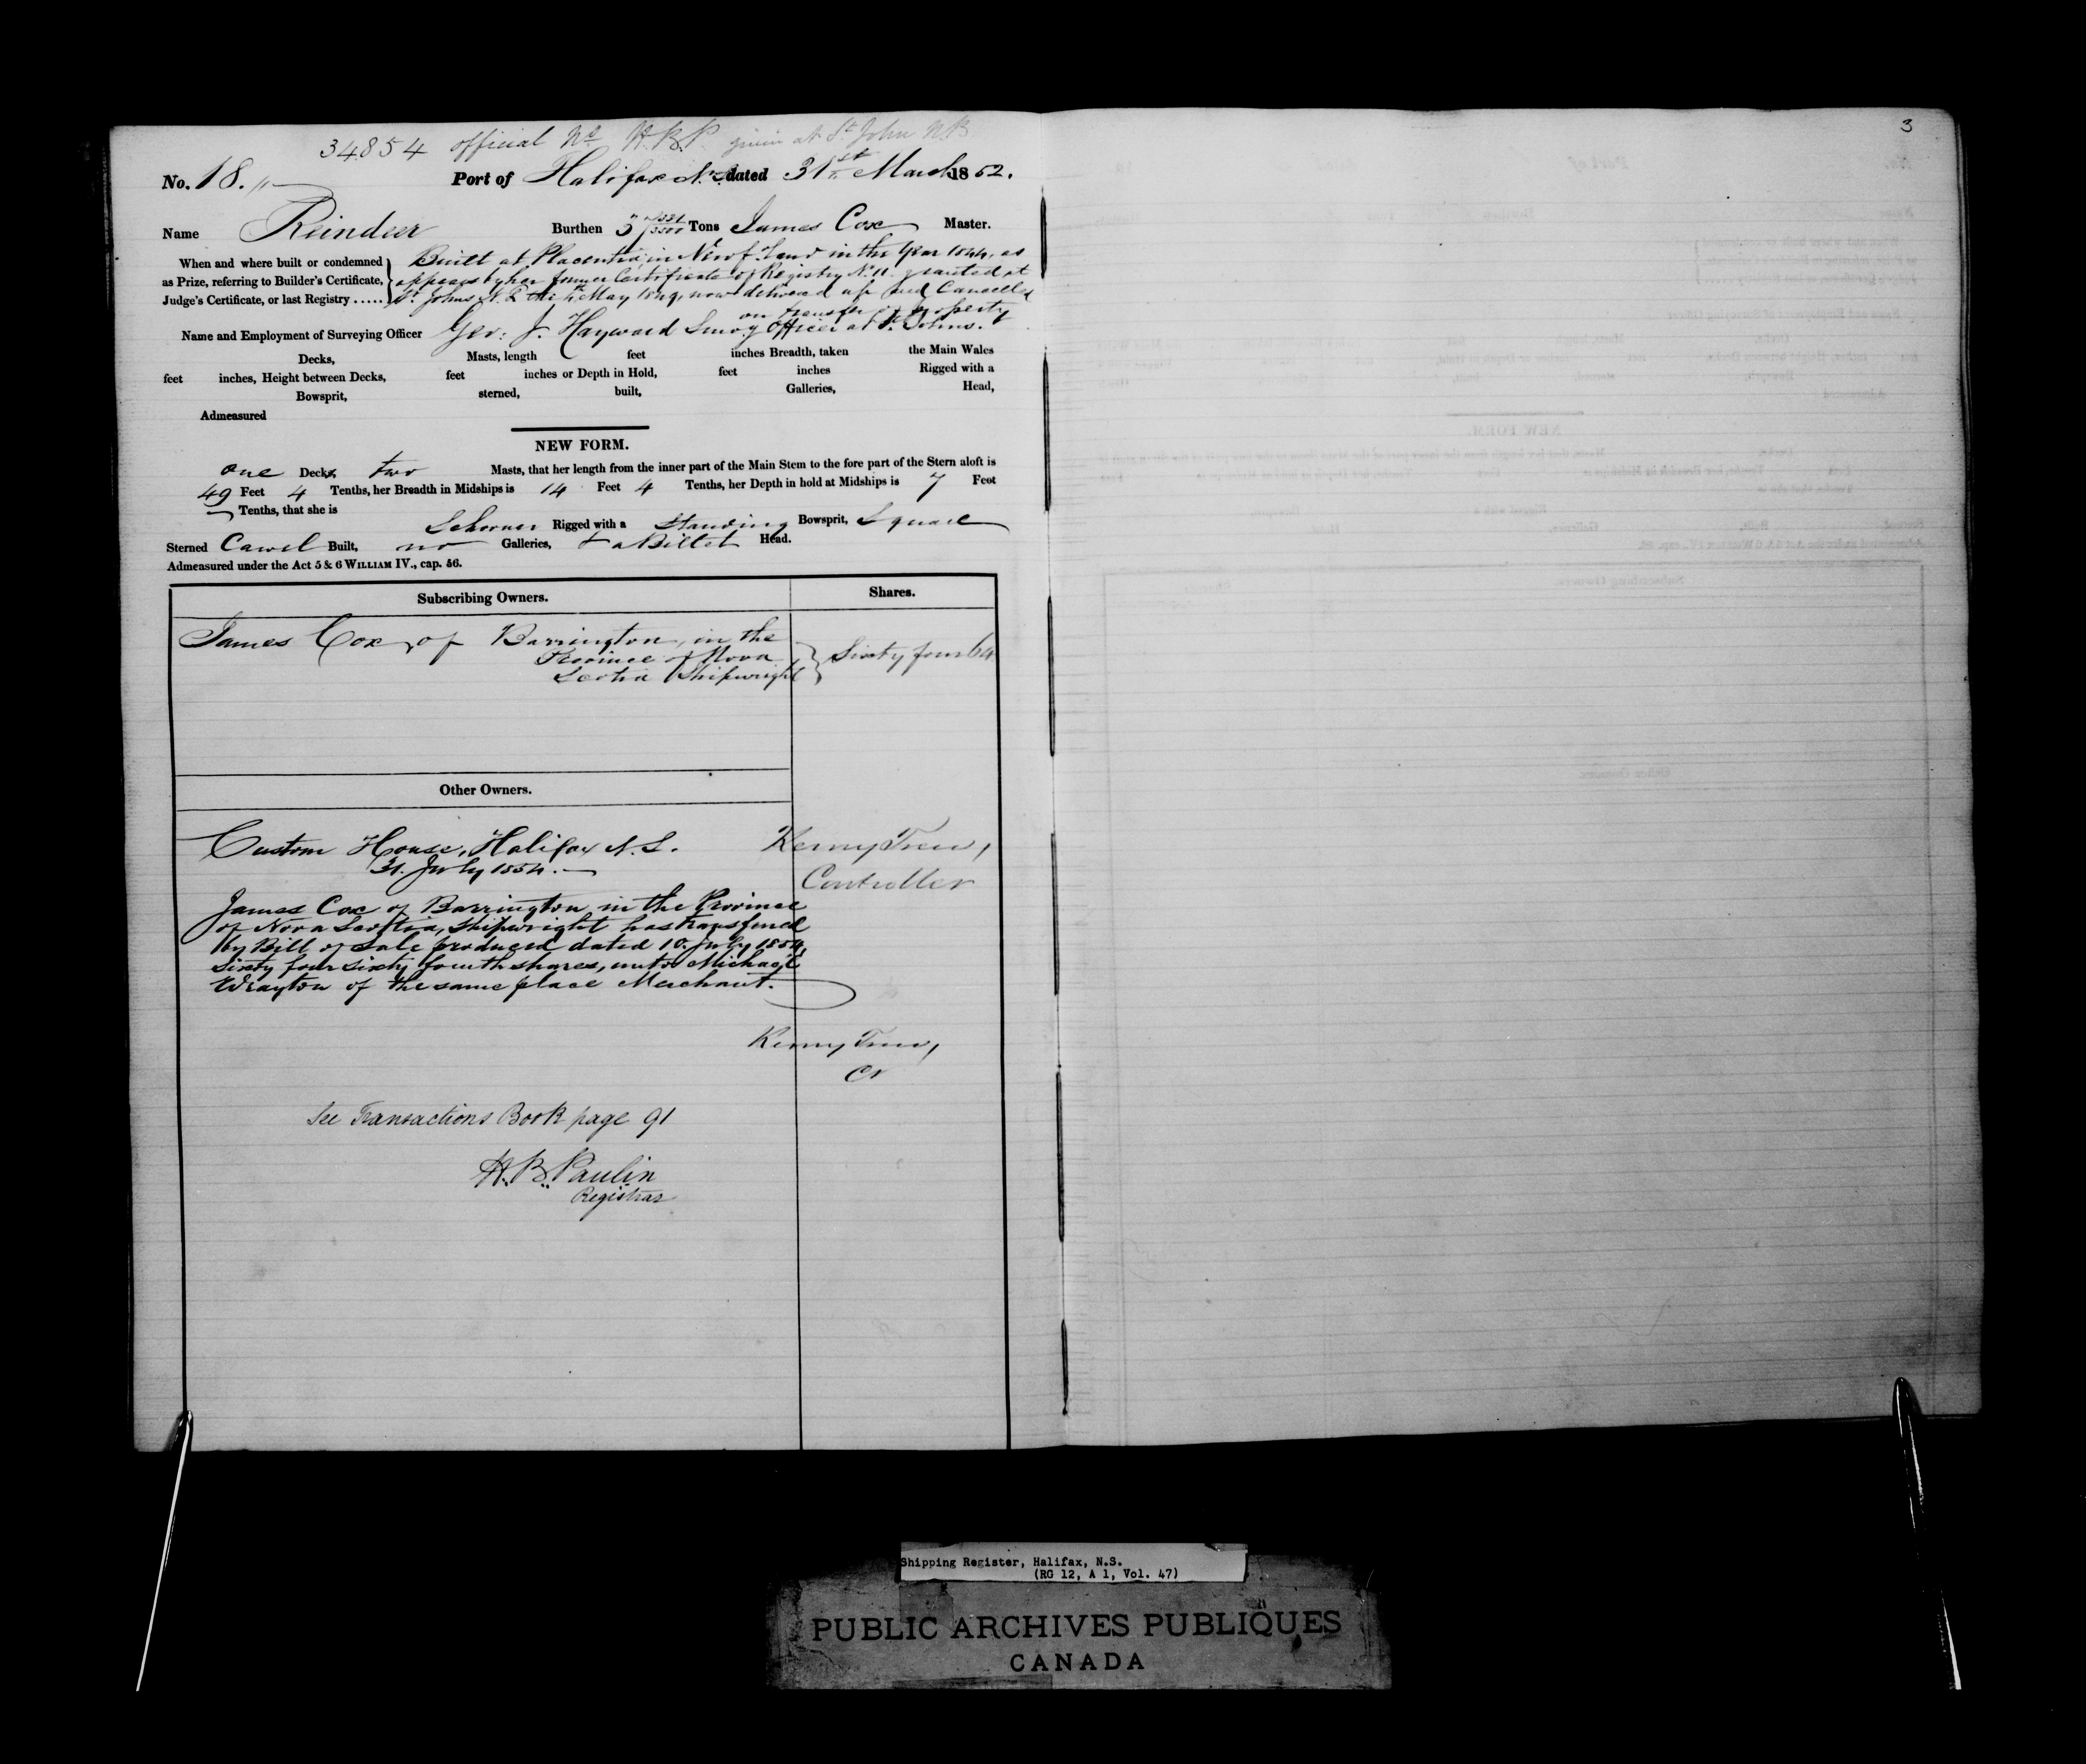 34854 official No H.B.P. given at St John NB
3
No. 18. Port of Halifax N.S. dated 31st March 1852.
Name Reindeer Burthen Tons James Cox Master.
When and where built or condemned
as Prize, referring to Builder's Certificate,
Judge's Certificate, or last Registry .....
Built at Placentia, in Newf.Land in the Year 1844, as
appears by her former Certificate of Registry No. 11. granted at
St Johns N.F. the May 1849, now delivered up and Cancelled
on transfer of Property
Name and Employment of Surveying Officer Geo: J. Hayward Survg Officer at St. Johns.
Decks, Masts, length feet inches Breadth, taken the Main Wales
feet inches, Height between Decks, feet inches or Depth in Hold, feet inches Rigged with a
Bowsprit, sterned, built, Galleries, Head,
Admeasured
NEW FORM.
one Decks, two Masts, that her length from the inner part of the Main Stem to the fore part of the Stern aloft is
49 Feet 4 Tenths, her Breadth in Midships is 14 Feet 4 Tenths, her Depth in hold at Midships is 7 Feet
Tenths, that she is Schooner Rigged with a Standing Bowsprit, Square
Sterned Carvel Built, no Galleries, & a Billet Head.
Admeasured under the Act 5 & 6 WILLIAM IV., cap. 56.
Subscribing Owners. Shares.
James Cox, of Barrington, in the
Province of Nova
Scotia Shipwright
Sixty four 64
Other Owners.
Custom House, Halifax N.S.
31. July 1854.
Controller
James Cox of Barrington in the Province
of Nova Scotia, Shipwright has transfered
by Bill of Sale produced dated 10. July 1854,
Sixty four sixty fourth shares, unto Michael
Wrayton of the same place Merchant.
Cr
See Transactions Book page 91
H.B. Paulin
Registrar
Shipping Register, Halifax, N.S.
(RG 12, A 1, Vol. 47)
PUBLIC ARCHIVES PUBLIQUES
CANADA